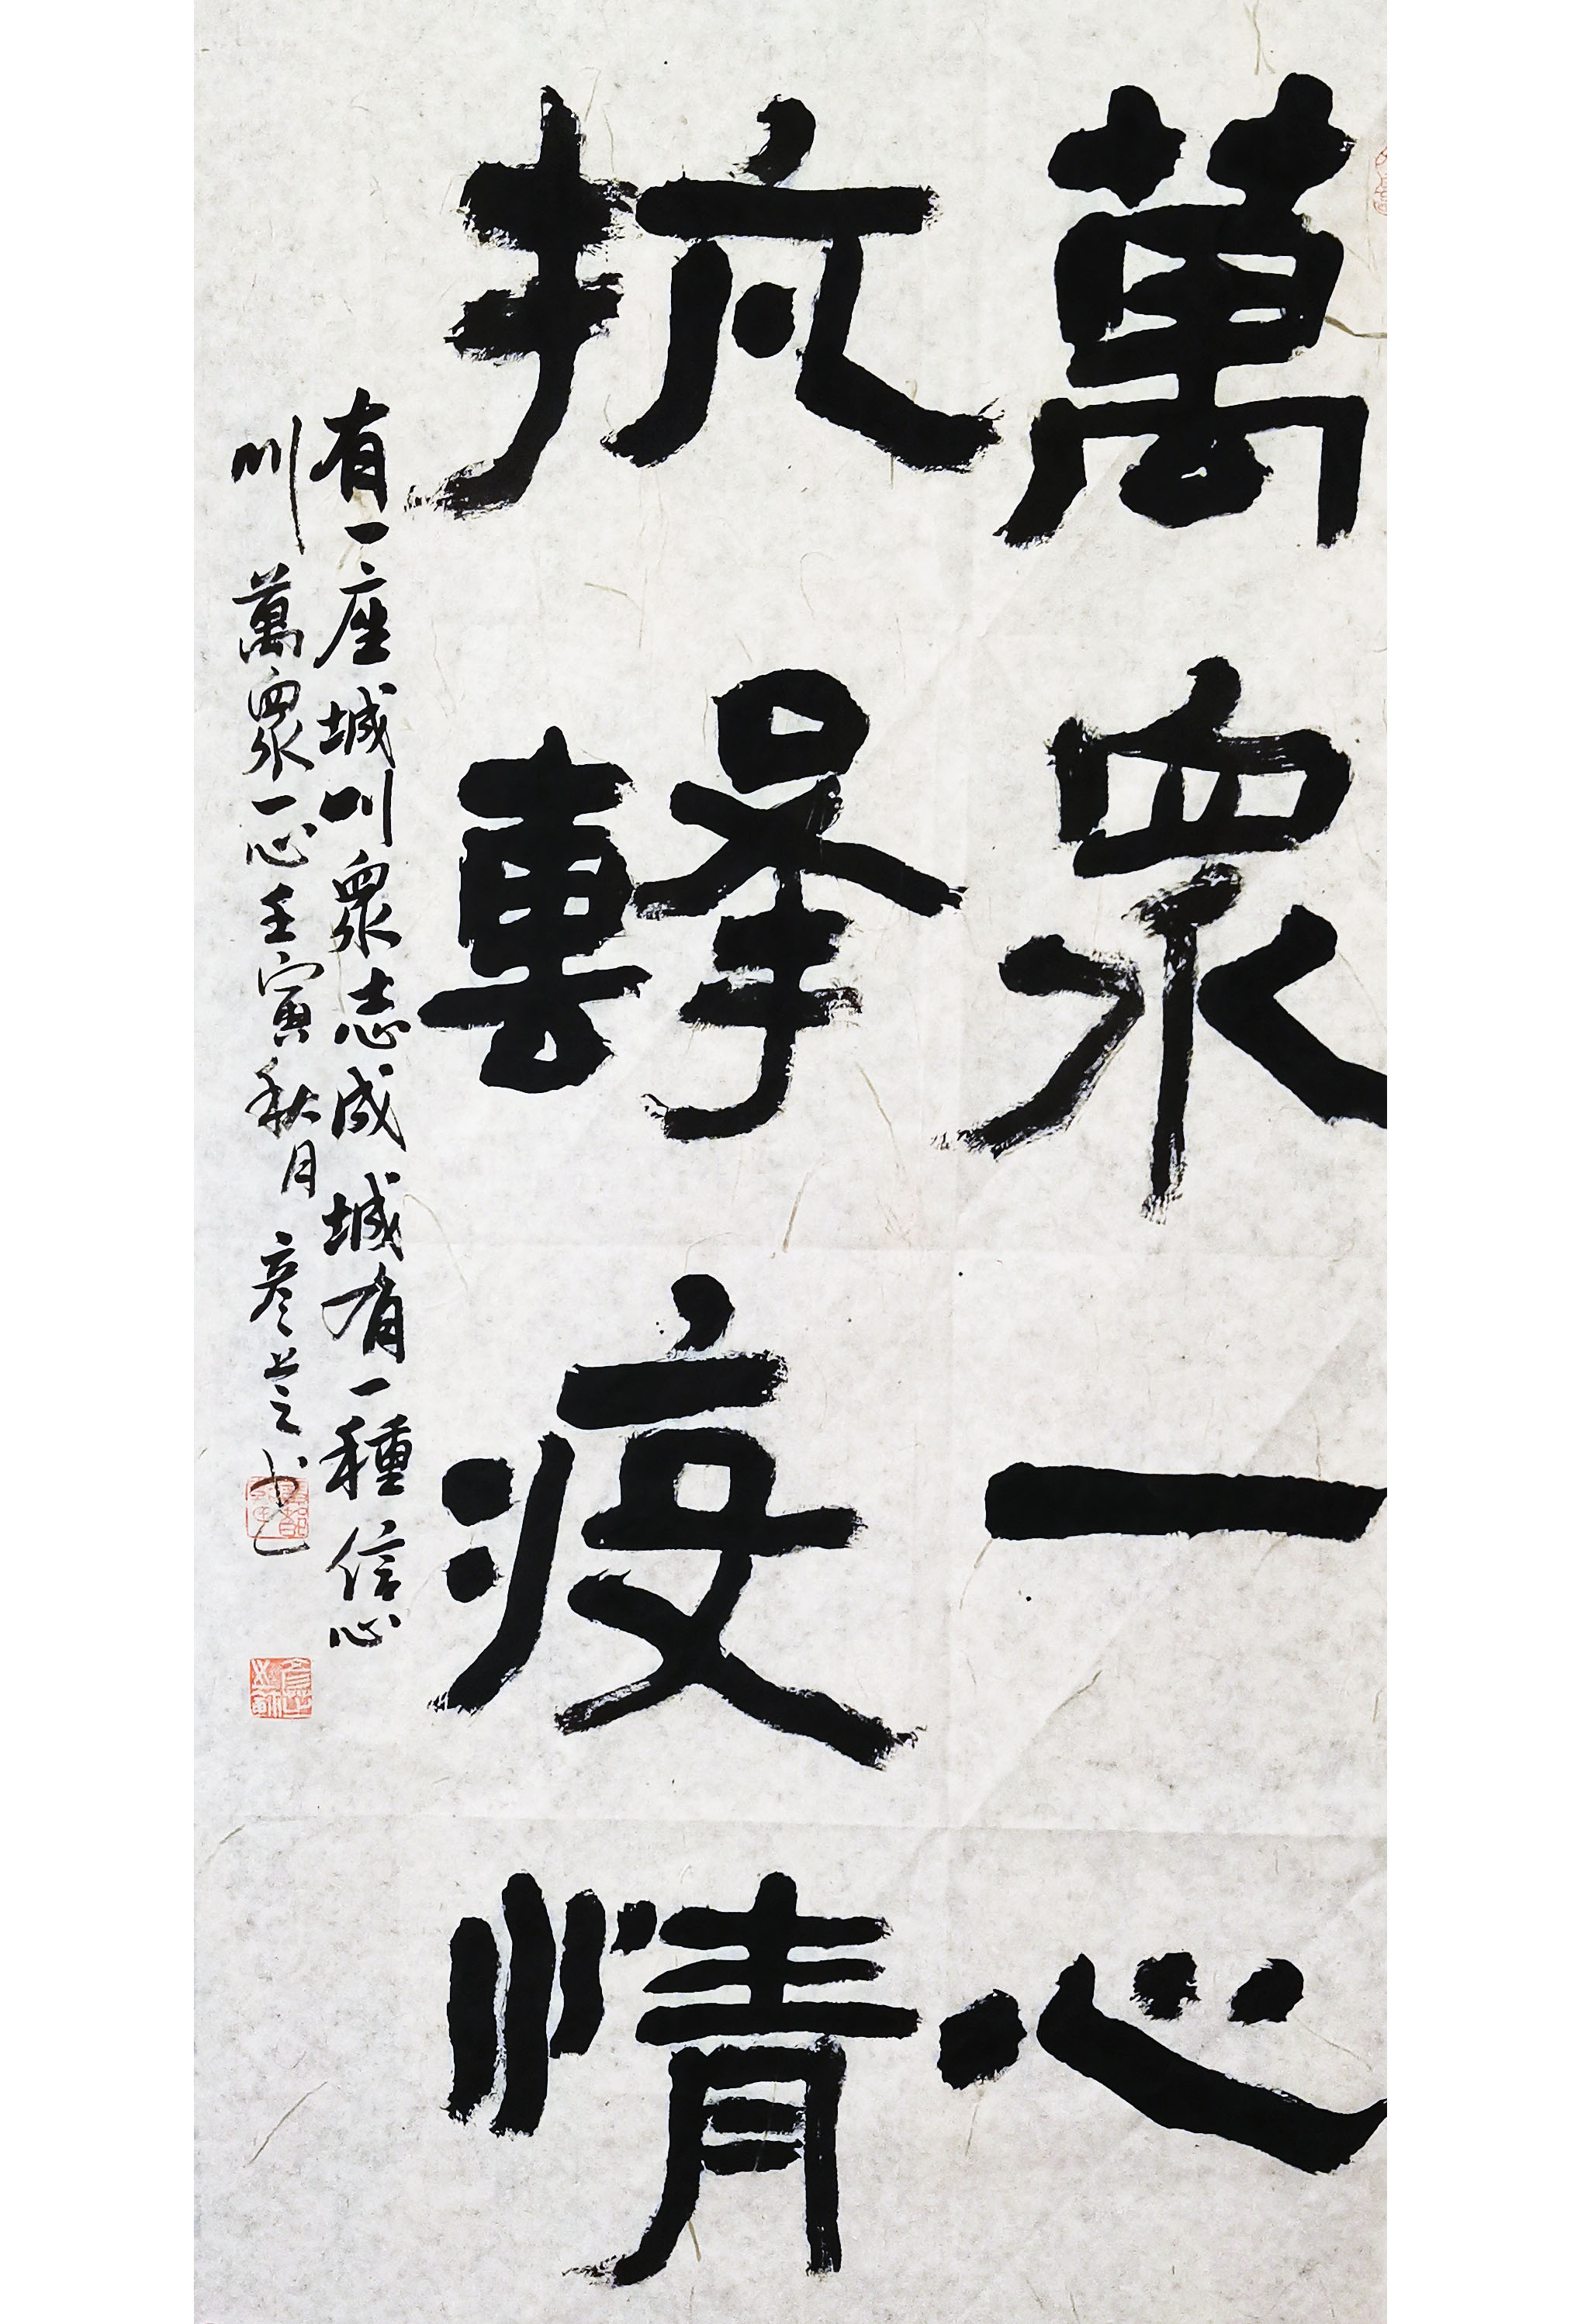 萬眾一心
抗擊疫情
有一座城叫眾志成城有一種信心
叫萬眾一心壬寅秋月彥芝书